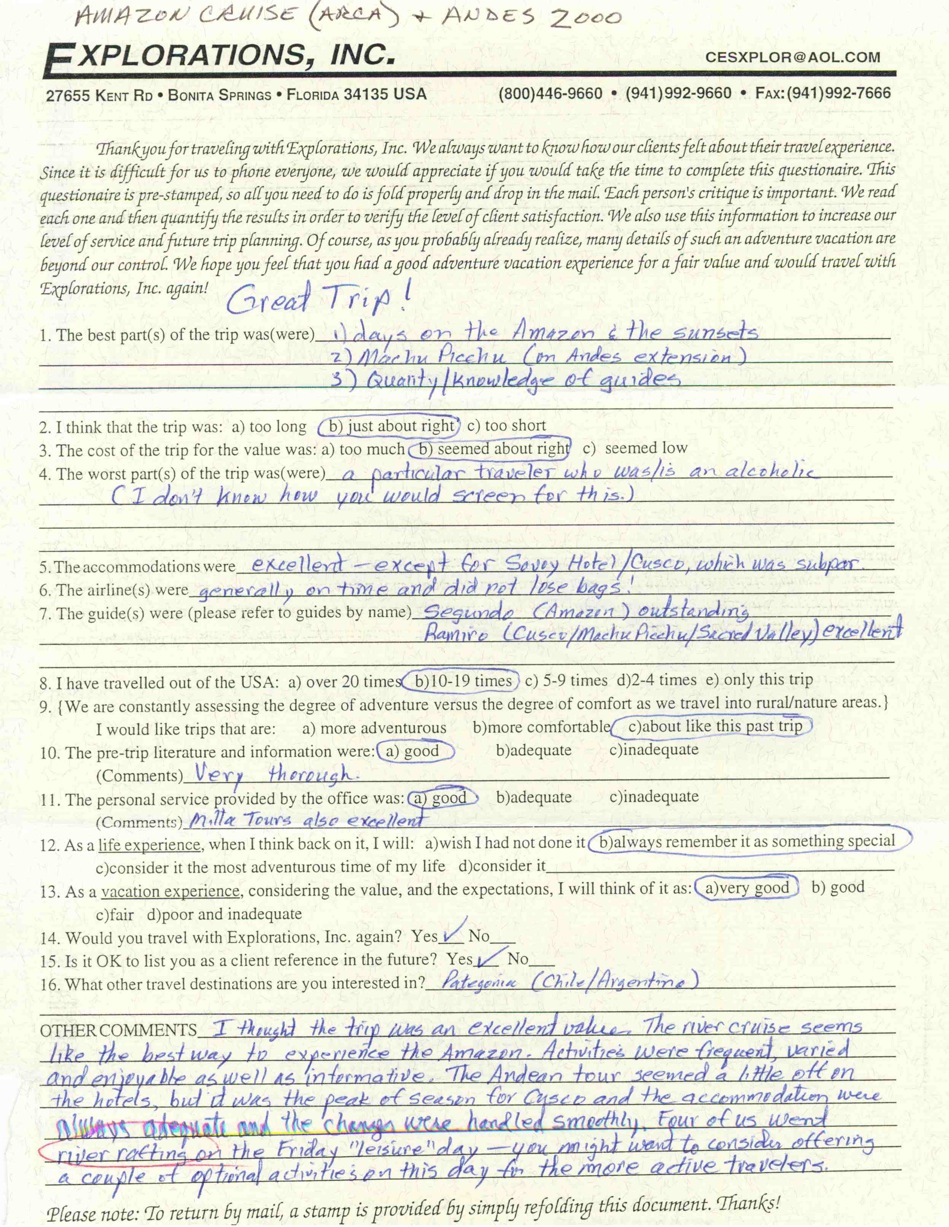 AMAZON CRUISE (ARCA) + ANDES 2000
EXPLORATIONS, INC.
CESXPLOR@AOL.COM
27655 KENT RD • BONITA SPRINGS • FLORIDA 34135 USA (800)446-9660 • (941)992-9660 • FAX:(941)992-7666
Thank you for traveling with Explorations, Inc. We always want to know how our clients felt about their travel experience.
Since it is difficult for us to phone everyone, we would appreciate if you would take the time to complete this questionaire. This
questionaire is pre-stamped, so all you need to do is fold properly and drop in the mail. Each person's critique is important. We read
each one and then quantify the results in order to verify the level of client satisfaction. We also use this information to increase our
level of service and future trip planning. Of course, as you probably already realize, many details of such an adventure vacation are
beyond our control. We hope you feel that you had a good adventure vacation experience for a fair value and would travel with
Explorations, Inc. again!
Great Trip!
1. The best part(s) of the trip was(were) 1) days on the Amazon & the sunsets
2) Machu Picchu (on Andes extension)
3) Quanty/knowledge of guides
2. I think that the trip was: a) too long b) just about right c) too short
3. The cost of the trip for the value was: a) too much b) seemed about right c) seemed low
4. The worst part(s) of the trip was(were) a particular traveler who was/is an alcoholic
(I don't know how you would screen for this.)
5. The accommodations were excellent - except for Savoy Hotel/Cusco, which was subpar.
6. The airline(s) were generally on time and did not lose bags!
7. The guide(s) were (please refer to guides by name) Segundo (Amazon) outstanding
Ramiro (Cusco/Machu Picchu/Sacred Valley) excellent
8. I have travelled out of the USA: a) over 20 times b)10-19 times c) 5-9 times d)2-4 times e) only this trip
9. {We are constantly assessing the degree of adventure versus the degree of comfort as we travel into rural/nature areas.}
I would like trips that are: a) more adventurous b)more comfortable c)about like this past trip
10. The pre-trip literature and information were: a) good b)adequate c)inadequate
(Comments) Very thorough.
11. The personal service provided by the office was: a) good b)adequate c)inadequate
(Comments) Milla Tours also excellent
12. As a life experience, when I think back on it, I will: a)wish I had not done it b)always remember it as something special
c)consider it the most adventurous time of my life d)consider it
13. As a vacation experience, considering the value, and the expectations, I will think of it as: a)very good b) good
c)fair d)poor and inadequate
14. Would you travel with Explorations, Inc. again? Yes ✓ No
15. Is it OK to list you as a client reference in the future? Yes ✓ No
16. What other travel destinations are you interested in? Patagonia (Chile/Argentina)
OTHER COMMENTS I thought the trip was an excellent value. The river cruise seems
like the best way to experience the Amazon. Activities were frequent, varied
and enjoyable as well as informative. The Andean tour seemed a little off on
the hotels, but it was the peak of season for Cusco and the accommodation were
always adequate and the changes were handled smoothly. Four of us went
river rafting on the Friday "leisure" day - you might want to consider offering
a couple of optional activities on this day for the more active travelers.
Please note: To return by mail, a stamp is provided by simply refolding this document. Thanks!